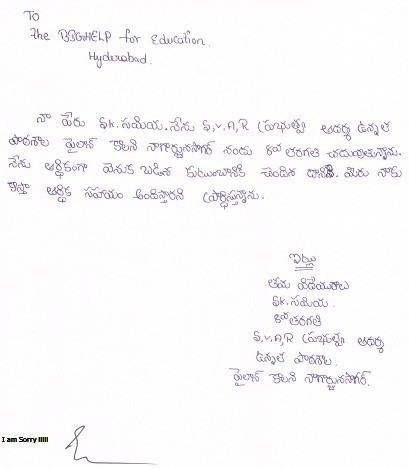 To
The BBGHELP for Education.
Hyderabad.
నా పేరు Sk. సమియ. నేను S,V,A,R (ప్రభుత్వ) ఆదర్శ ఉన్నత
పాఠశాల పైలాన్ కాలని నాగార్జునసాగర్ నందు 8వ తరగతి చదువుతున్నాను.
నేను ఆర్థికంగా వెనుక బడిన కుటుంబానికి చెందిన దానిని. మీరు నాకు
కాస్తా ఆర్థిక సహాయం అందిస్తారని ప్రార్థిస్తున్నాను.
ఇట్లు
తమ విదేయురాలు
Sk. సమియ.
8వ తరగతి
S,V,A,R (ప్రభుత్వ) ఆదర్శ
ఉన్నత పాఠశాల.
పైలాన్ కాలని నాగార్జునసాగర్.
I am Sorry lllll